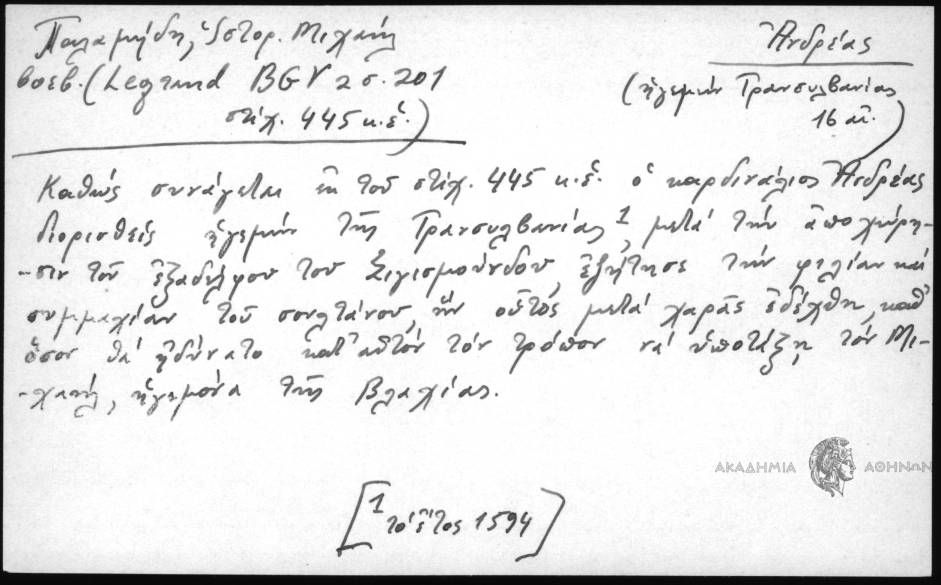 Παλαμήδη, Ἱστορ. Μιχαήλ
βοεβ. (Legrand BGV 2 σ. 201
στίχ. 445 κ.ἑ.)
Ἀνδρέας
(ἡγεμών Τρανσυλβανίας
16 αἰ.)
Καθώς συνάγεται ἐκ τοῦ στίχ. 445 κ.ἑ. ὁ καρδινάλιος Ἀνδρέας
διορισθείς ἡγεμών τῆς Τρανσυλβανίας 1, μετά τήν ἀποχώρη-
-σιν τοῦ ἐξαδέλφου του Σιγισμούνδου, ἐζήτησε τήν φιλίαν καί
συμμαχίαν τοῦ σουλτάνου, ἥν οὗτος μετά χαρᾶς ἐδέχθη, καθ'
ὅσον θά ἠδύνατο κατ' αὐτόν τόν τρόπον νά ὑποτάξῃ τόν Μι-
-χαήλ, ἡγεμόνα τῆς Βλαχίας.
ΑΚΑΔΗΜΙΑ ΑΘΗΝΩΝ
[1 τό ἔτος 1594]